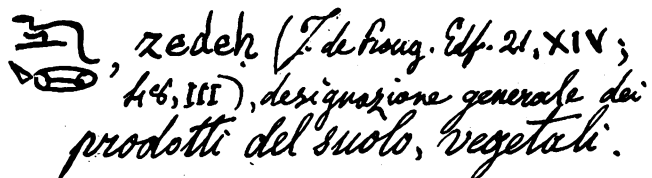 , zedeh (J. de Roug. Edf. 21, XIV;
48, III), designazione generale dei
prodotti del suolo, vegetali.